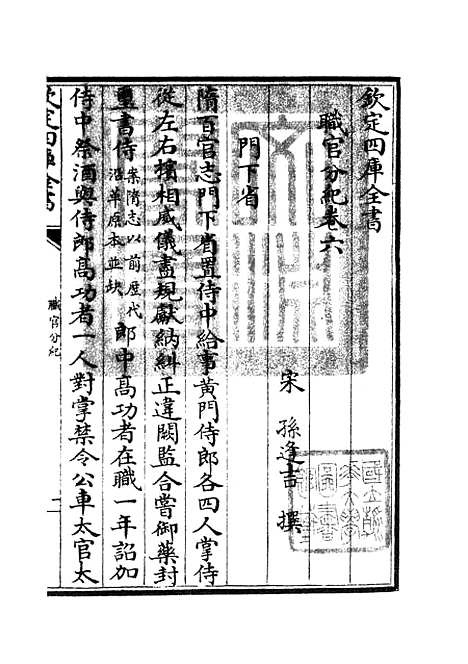 欽定四庫全書
職官分紀卷六
宋 孫逢吉 撰
門下省
隋百官志門下省置侍中給事黄門侍郎各四人掌侍
從左右擯相威儀盡規獻納糾正違闕監合嘗御藥封
璽書侍案隋志以前歴代沿革原本並缺郎中髙功者在職一年詔加
侍中祭酒與侍郎髙功者一人對掌禁令公車太官太
欽定四庫全書
職官分紀